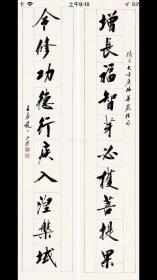 上午9:15
增長福智芽必獲菩提果
令修功德行疾入涅槃域